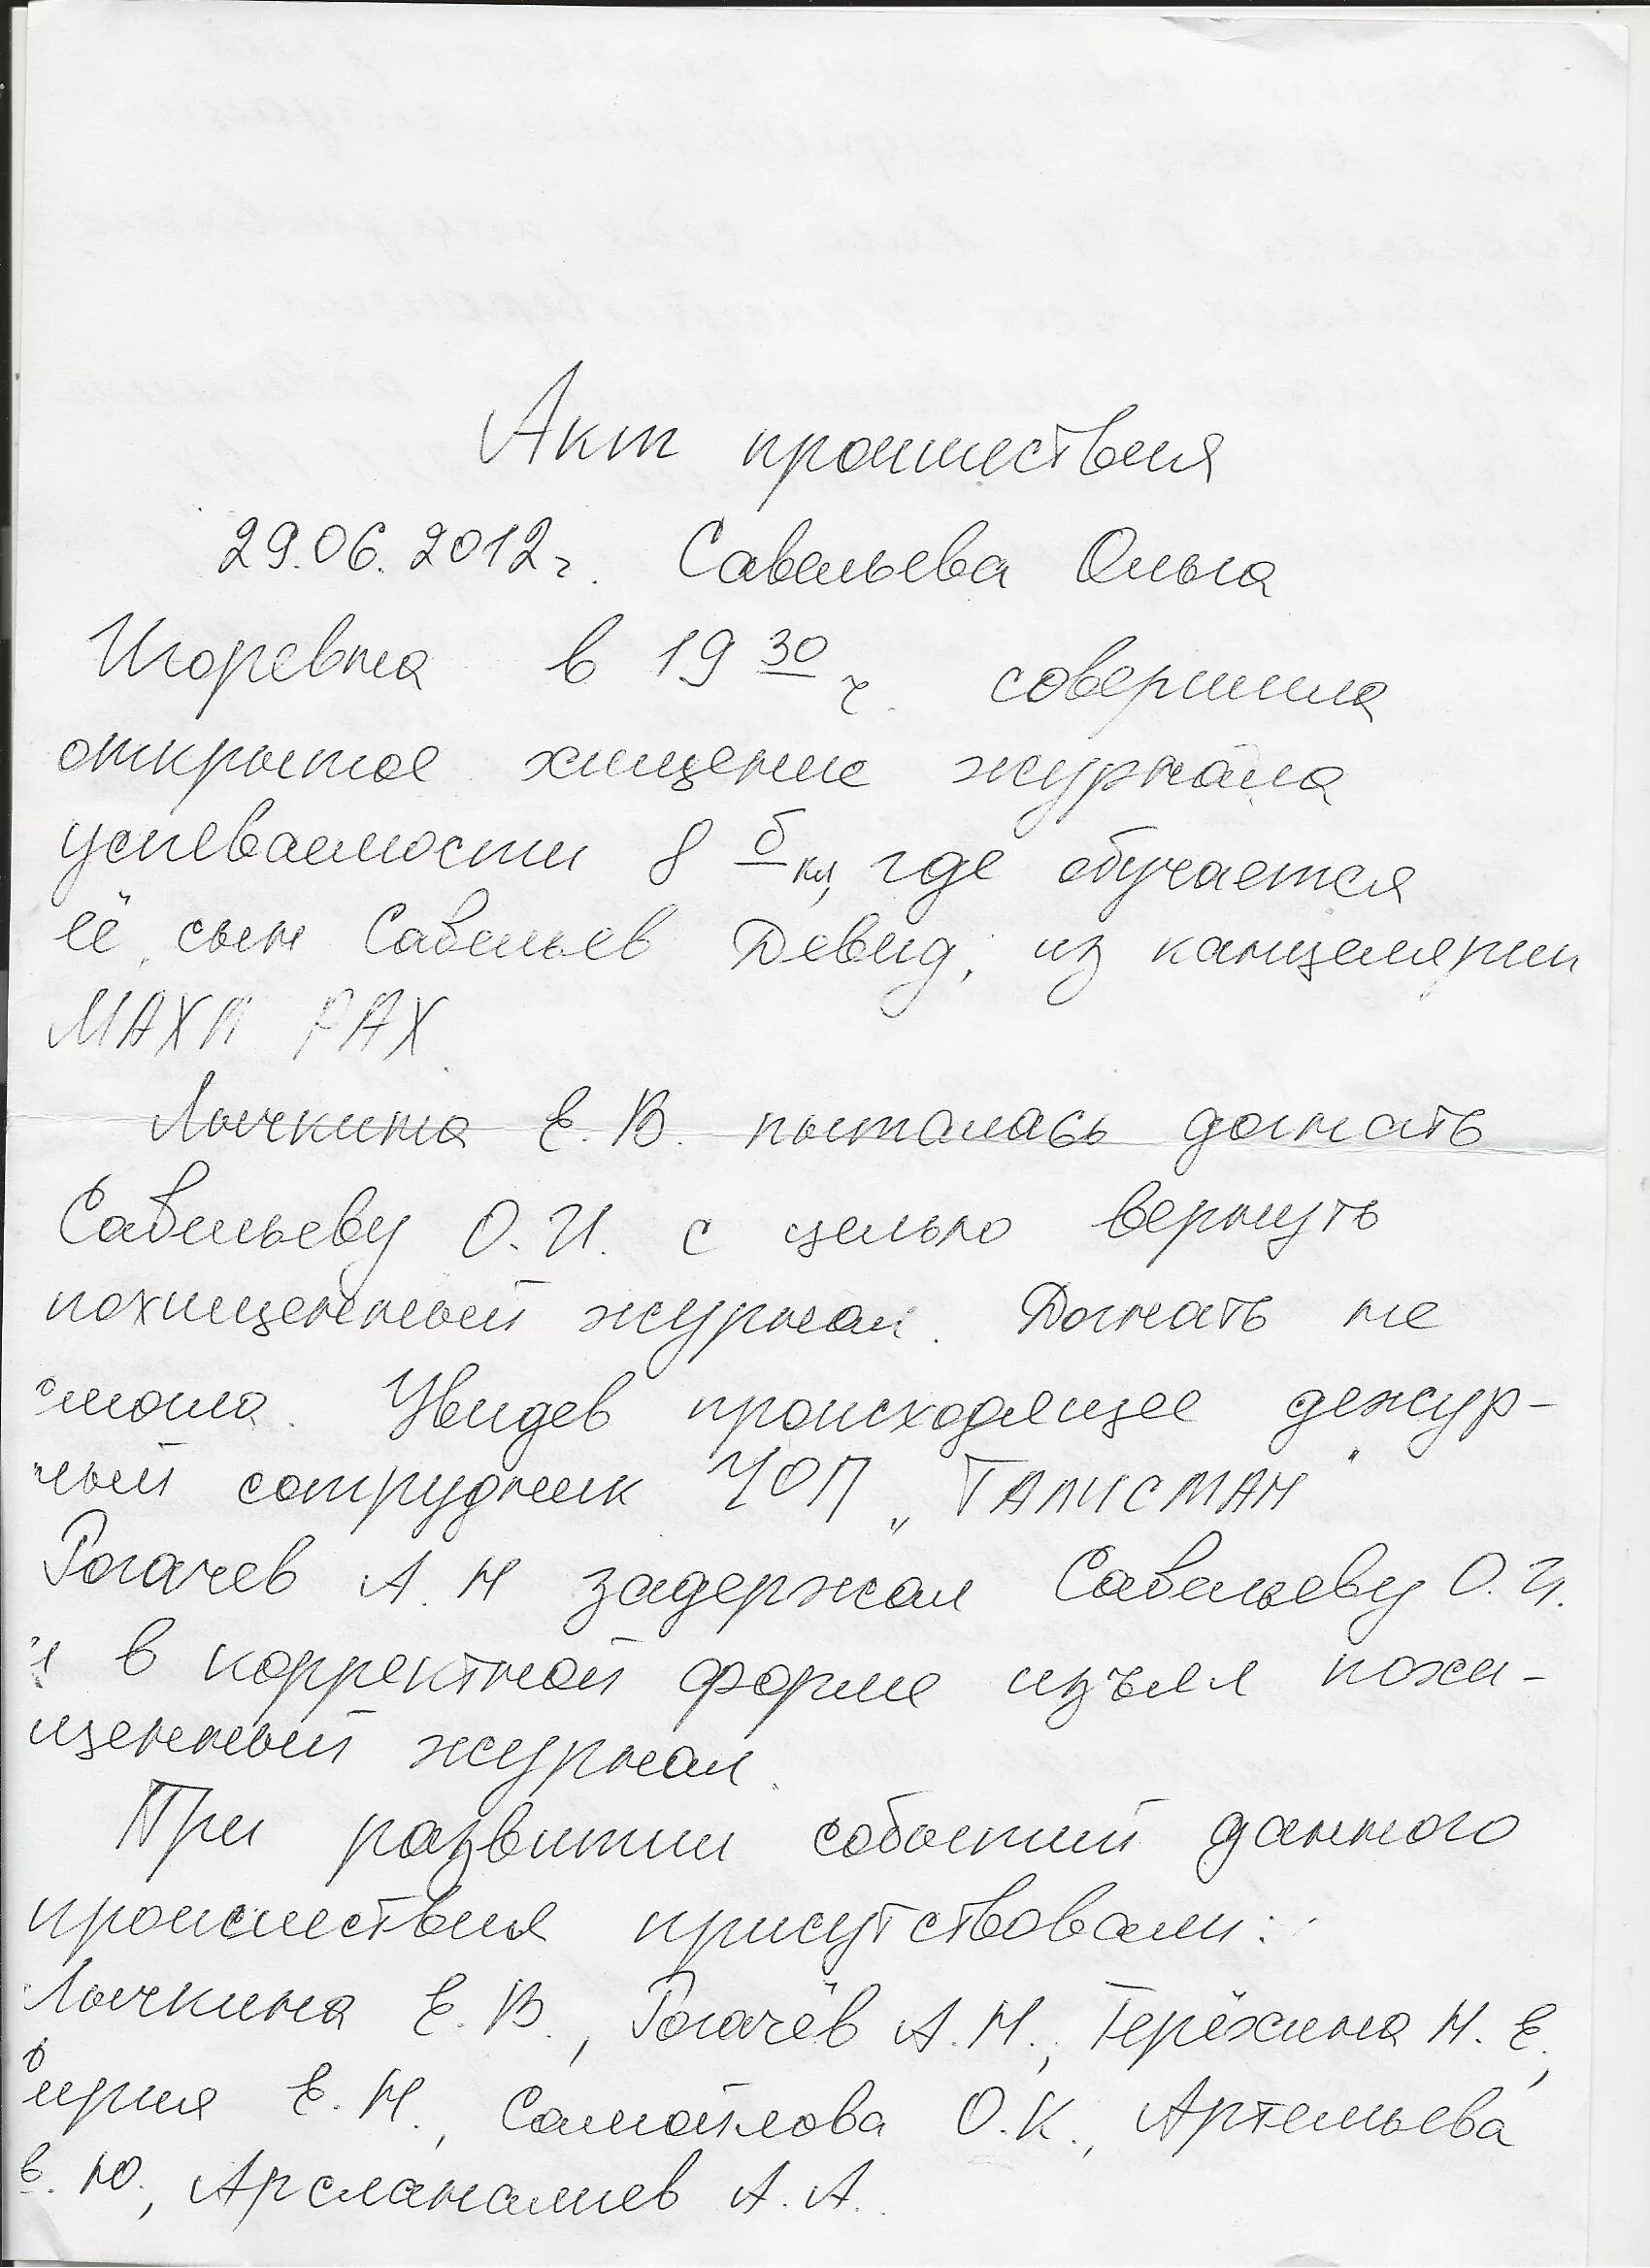 Акт происшествия
29.06.2012г. Савельева Ольга
Игоревна в 19 30 ч. совершила
открытое хищение журнала
успеваемости 8 б кл, где обучается
её сын Савельев Девид, из канцелярии
МАХЛ РАХ.
Лычкина Е.В. пыталась догнать
Савельеву О.И. с целью вернуть
похищенный журнал. Догнать не
смогла. Увидев происходящее дежур-
ный сотрудник ЧОП „ТАЛИСМАН"
Рогачев А.Н задержал Савельеву О.И.
и в корректной форме изъял похи-
щенный журнал.
При развитии событий данного
происшествия присутствовали:
Лычкина Е.В., Рогачёв А.Н., Терёхина Н.Е.,
Е.Н., Самойлова О.К., Артемьева
Ю., Арсланалиев А.А.